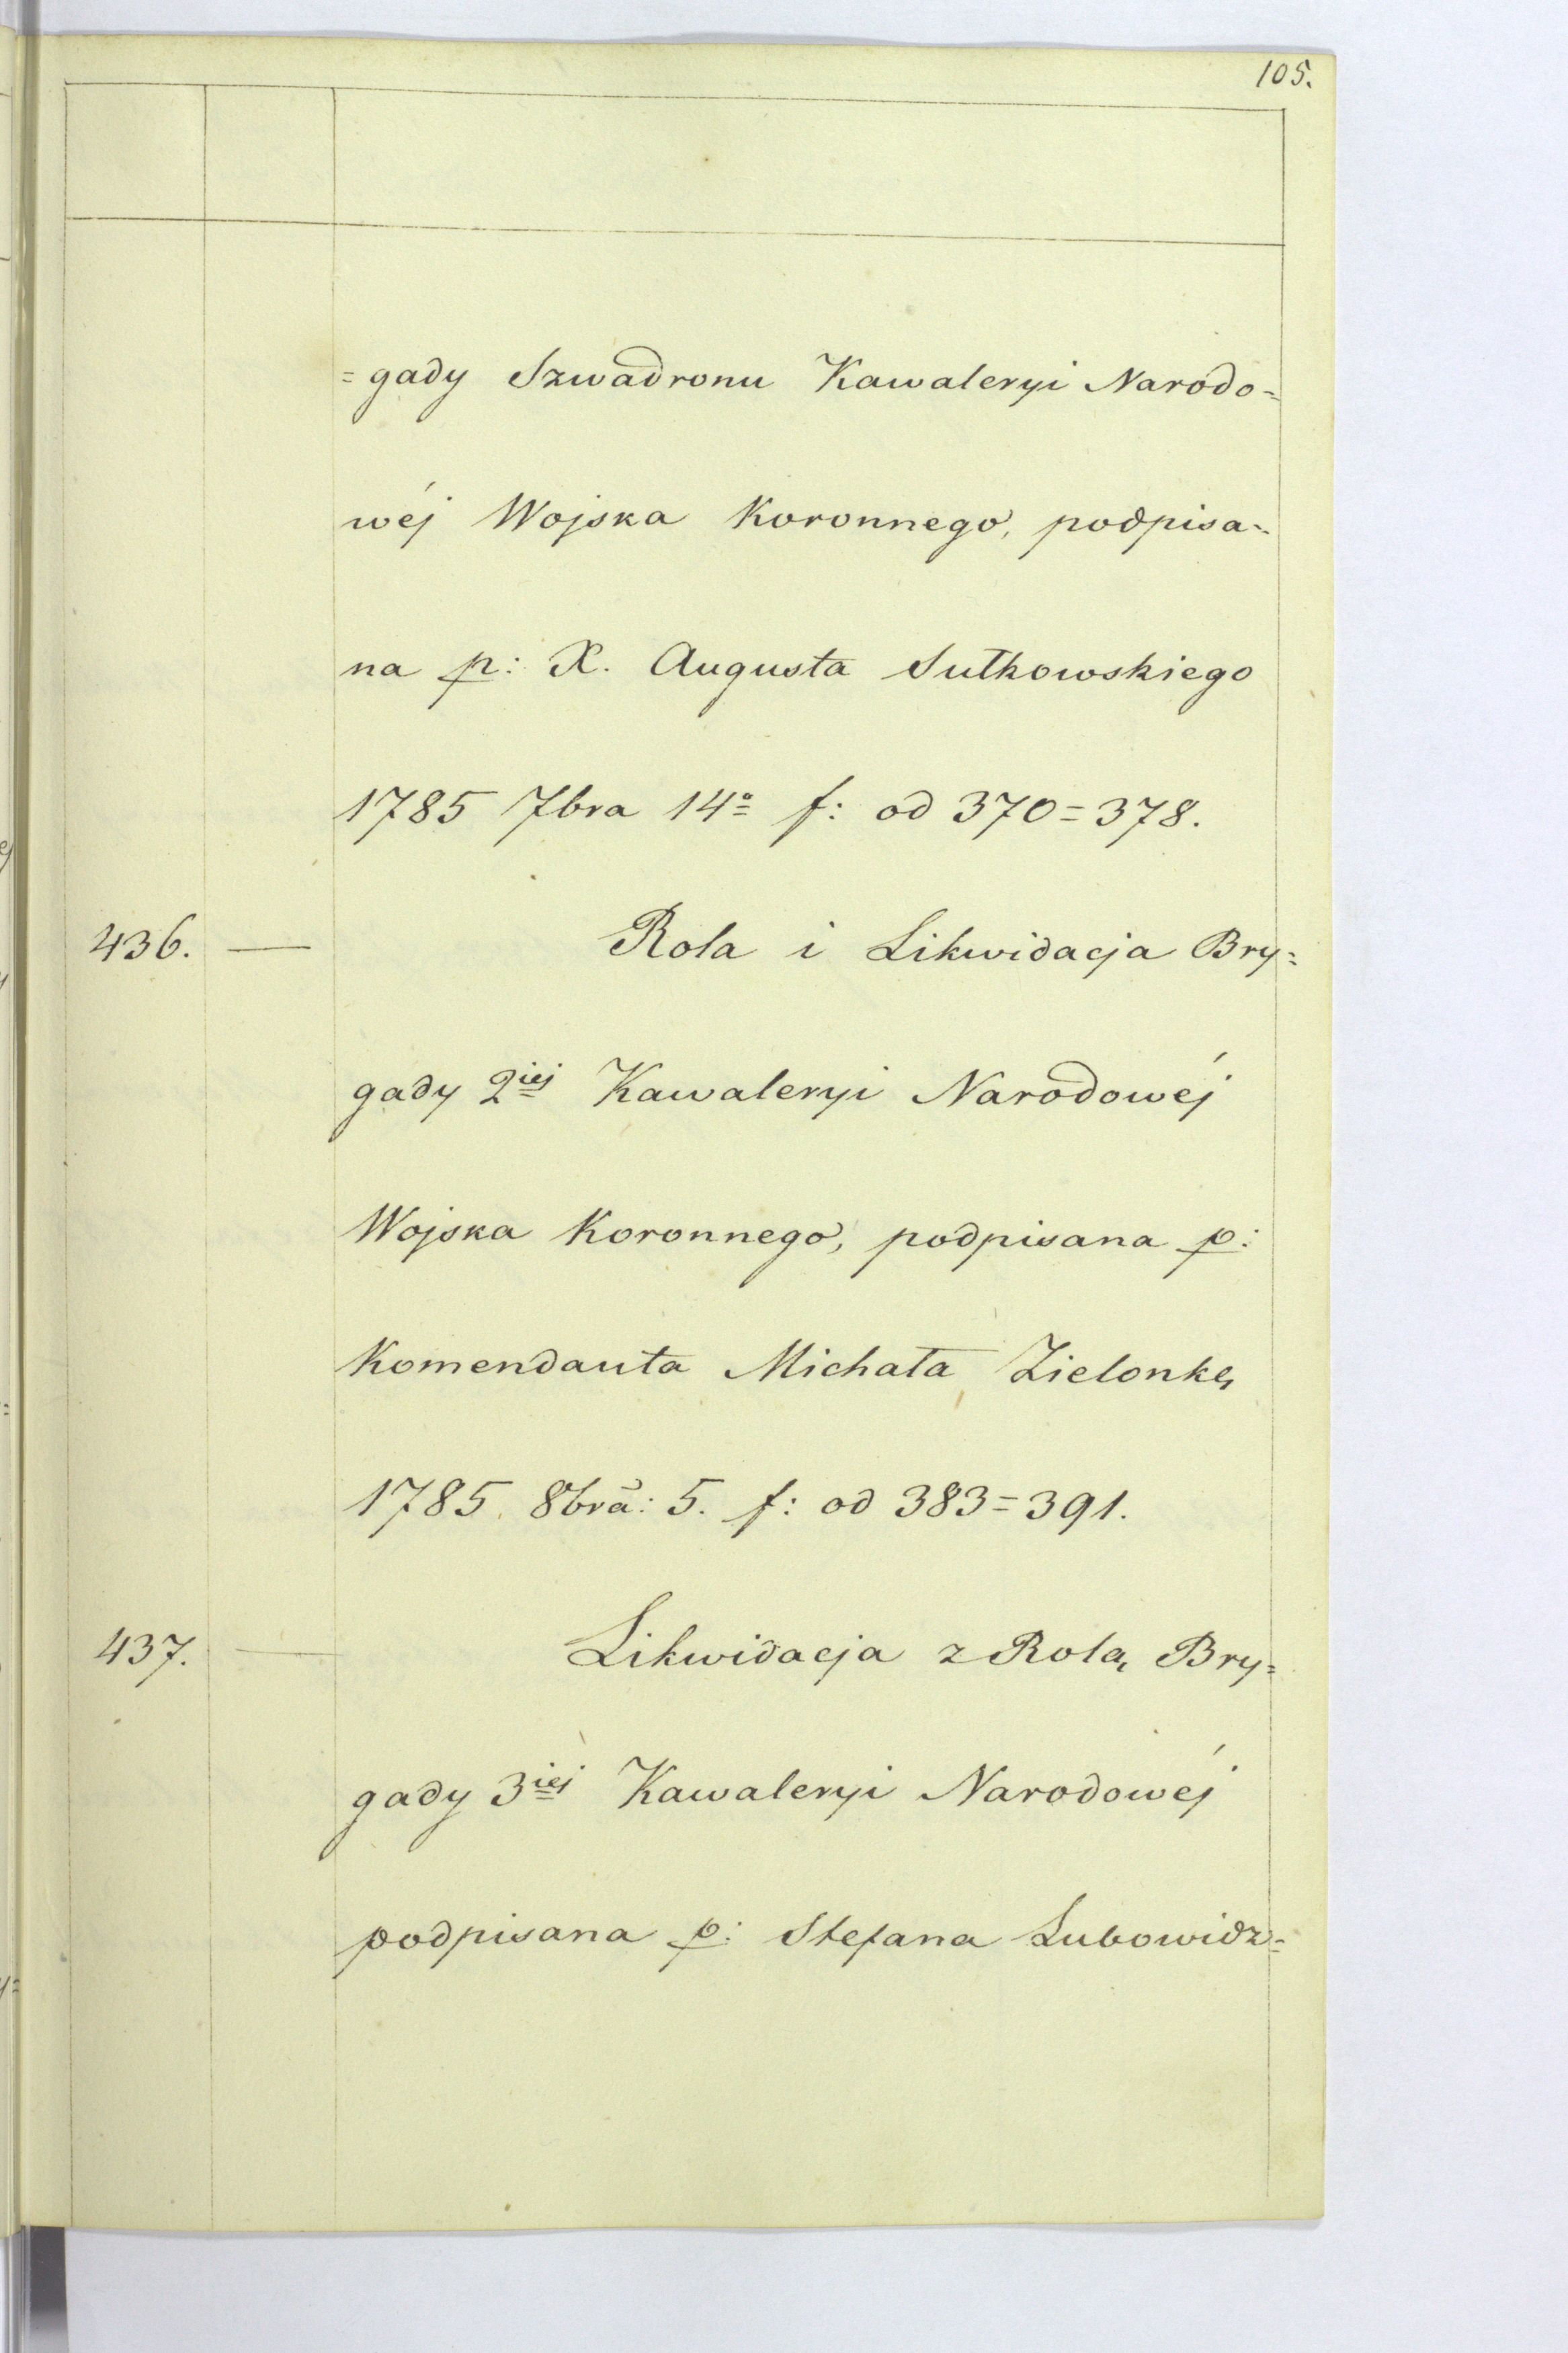 105.
=gady Szwadronu Kawaleryi Narodo=
wéj Wojska Koronnego, podpisa=
na p: X. Augusta Sułkowskiego
1785 7bra 14º f: od 370=378.
436. — Rola i Likwidacja Bry=
gady 2iej Kawaleryi Narodowéj
Wojska Koronnego, podpisana p:
Komendanta Michała Zielonkę
1785. 8bra: 5. f: od 383=391.
437. — Likwidacja z Rolą Bry=
gady 3iej Kawaleryi Narodowéj
podpisana p: Stefana Lubowidz=